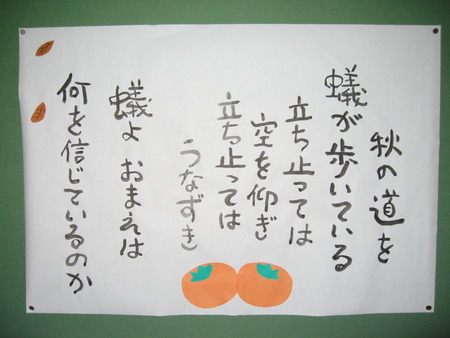 秋の道を
蟻が歩いている
立ち止っては
空を仰ぎ
立ち止っては
うなずき
蟻よ おまえは
何を信じているのか